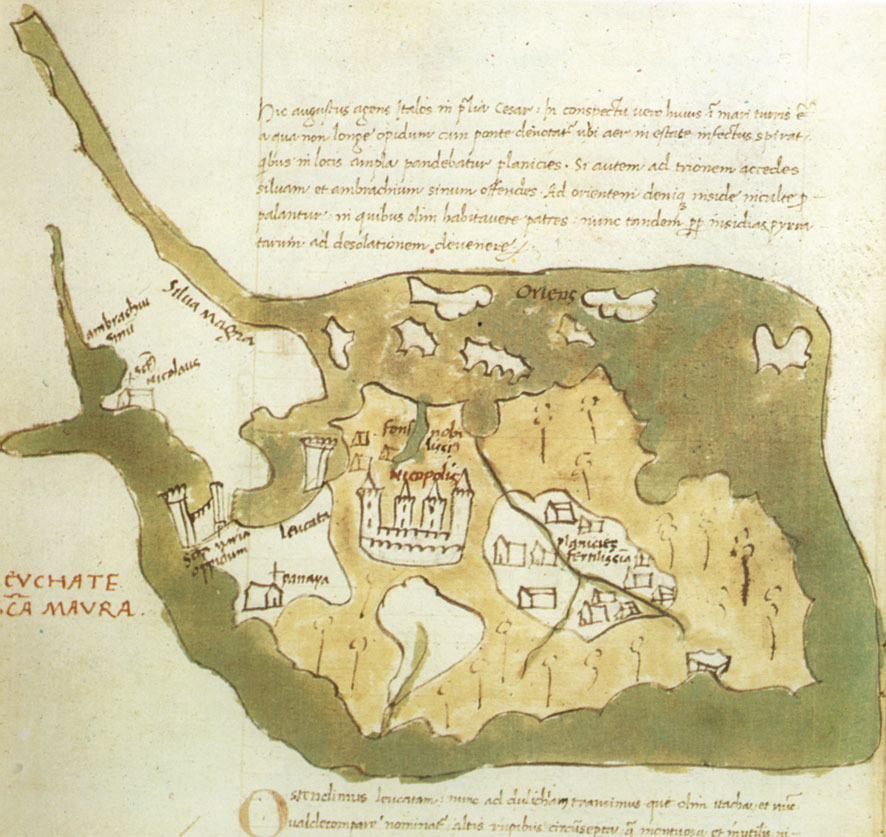 Hic augustus agens Italos in prlia Cesar: In conspectu vero huius i mari turris e
a qua non longe opidum cum ponte denotat ubi aer in estate infectus spirat.
qbus in locis ampla pandebatur planicies. Si autem ad trionem accedes
siluam et ambrachium sinum offendes. Ad orientem deniq inside inculte p
palantur: in quibus olim habitauere patres: nunc tandem pp insidias pyrra
tarum ad desolationem devenere
Oriens
Silua Magna
ambrachiu
sinu
Nicolaus
fons nobi
lis
Nicopolis
leucata
Sca maria
oppidum
panaya
planicies
fertilissia
EVCHATE
CA MAVRA.
Ostendimus leucatam: nunc ad dulichiam transimus que olim itacha, et nuc
ualdecompare nominat altis rupibus circusepta q montuosa et inutilis